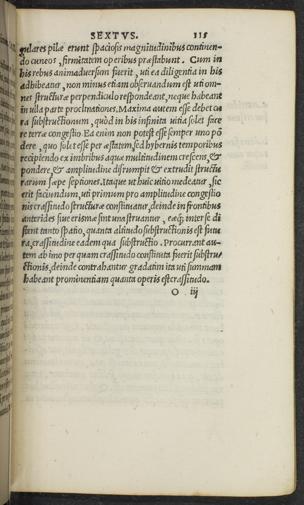 SEXTVS. 115
gulares pilæ erunt spaciosis magnitudinibus continen-
do cuneos, firmitatem operibus præstabunt. Cum in
his rebus animaduersum fuerit, uti ea diligentia in his
adhibeatur, non minus etiam obseruandum est uti om-
nes structuræ perpendiculo respondeant, neque habeant
in ulla parte proclinationes. Maxima autem esse debet cu
ra substructionum, quòd in his infinita uitia solet face
re terræ congestio. Ea enim non potest esse semper uno pō
dere, quo solet esse per æstatem, sed hybernis temporibus
recipiendo ex imbribus aquæ multitudinem crescens, &
pondere, & amplitudine disrumpit & extrudit structu
rarum sæpe septiones. Itaque ut huic uitio medeatur, sic
erit faciundum, uti primum pro amplitudine congestio
nis crassitudo structuræ constituatur, deinde in frontibus
anterides siue erismæ sint unà struantur, eæq; inter se di
stent tanto spatio, quanta altitudo substructionis est futu
ra, crassitudine eadem qua substructio. Procurrant au-
tem ab imo per quam crassitudo constituta fuerit substru
ctionis, deinde contrahantur gradatim ita uti summam
habeant prominentiam quanta operis est crassitudo.
O iij